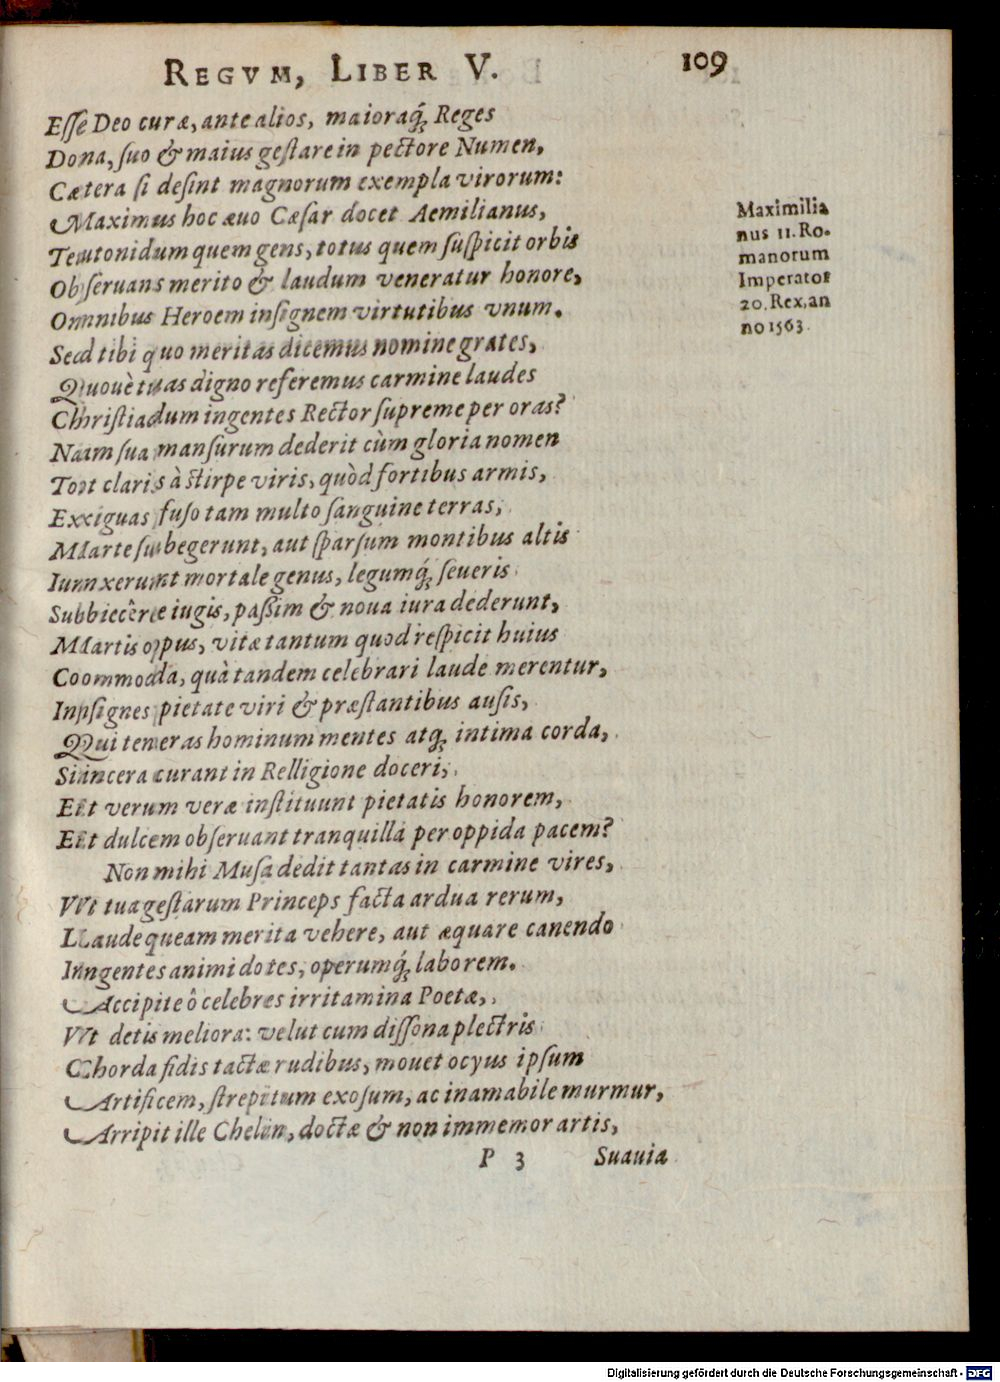 REGVM, LIBER V. 109
Esse Deo curæ, ante alios, maioraq́; Reges
Dona, suo & maius gestare in pectore Numen,
Cætera si desint magnorum exempla virorum:
Maximus hoc æuo Cæsar docet Aemilianus,
Teutonidum quem gens, totus quem suspicit orbis
Obseruans merito & laudum veneratur honore,
Omnibus Heroem insignem virtutibus vnum.
Sed tibi quo meritas dicemus nomine grates,
Quouè tuas digno referemus carmine laudes
Christiadum ingentes Rector supreme per oras?
Nam sua mansurum dederit cùm gloria nomen
Tot claris à stirpe viris, quòd fortibus armis,
Exiguas fuso tam multo sanguine terras,
Marte subegerunt, aut sparsum montibus altis
Iunxerunt mortale genus, legumq́; seueris
Subiecêre iugis, passim & noua iura dederunt,
Martis opus, vitæ tantum quod respicit huius
Commoda, quà tandem celebrari laude merentur,
Insignes pietate viri & præstantibus ausis,
Qui teneras hominum mentes atq; intima corda,
Sincera curant in Relligione doceri,
Et verum veræ instituunt pietatis honorem,
Et dulcem obseruant tranquilla per oppida pacem?
Non mihi Musa dedit tantas in carmine vires,
Vt tua gestarum Princeps facta ardua rerum,
Laude queam merita vehere, aut æquare canendo
Ingentes animi dotes, operumq́; laborem.
Accipite ô celebres irritamina Poetæ,
Vt detis meliora: velut cum dissona plectris
Chorda fidis tactæ rudibus, mouet ocyus ipsum
Artificem, strepitum exosum, ac inamabile murmur,
Arripit ille Chelin, doctæ & non immemor artis,
P 3 Suauia
Maximilia
nus 11. Ro-
manorum
Imperator
20. Rex, an
no 1563.
Digitalisierung gefördert durch die Deutsche Forschungsgemeinschaft - DFG